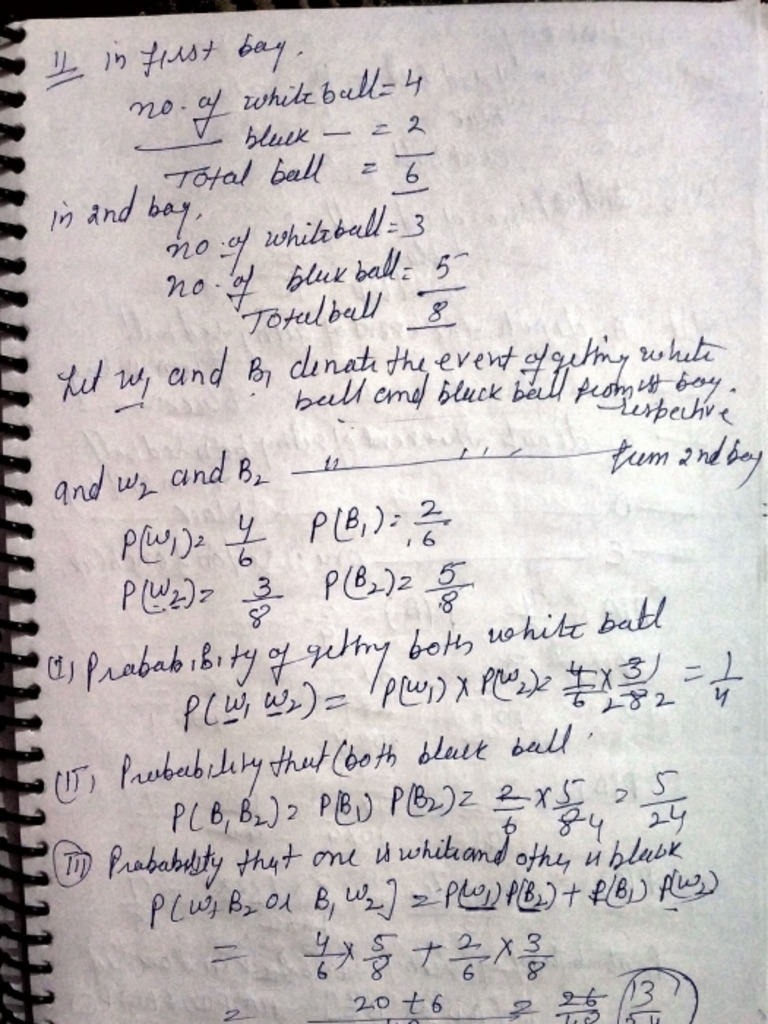 11 in first bag.
no. of white ball = 4
black — = 2
Total ball = 6
in 2nd bag,
no. of white ball = 3
no. of blak ball = 5
Total ball 8
Let W1 and B1 denate the event of getting white
ball and black ball from 1st bag.
respective
and W2 and B2 —— " —— " —— from 2nd bag
P(W1) = 4/6 P(B1) = 2/6
P(W2) = 3/8 P(B2) = 5/8
(I) Probability of getting both white ball
P(W1 W2) = P(W1) × P(W2) = 4/6 × 3/8 = 1/4
(II) Probability that (both black ball.
P(B1 B2) = P(B1) P(B2) = 2/6 × 5/8 = 5/24
(III) Probability that one is white and other is black
P(W1 B2 or B1 W2] = P(W1) P(B2) + P(B1) P(W2)
= 4/6 × 5/8 + 2/6 × 3/8
= 20 + 6/48 = 26/48 13/24